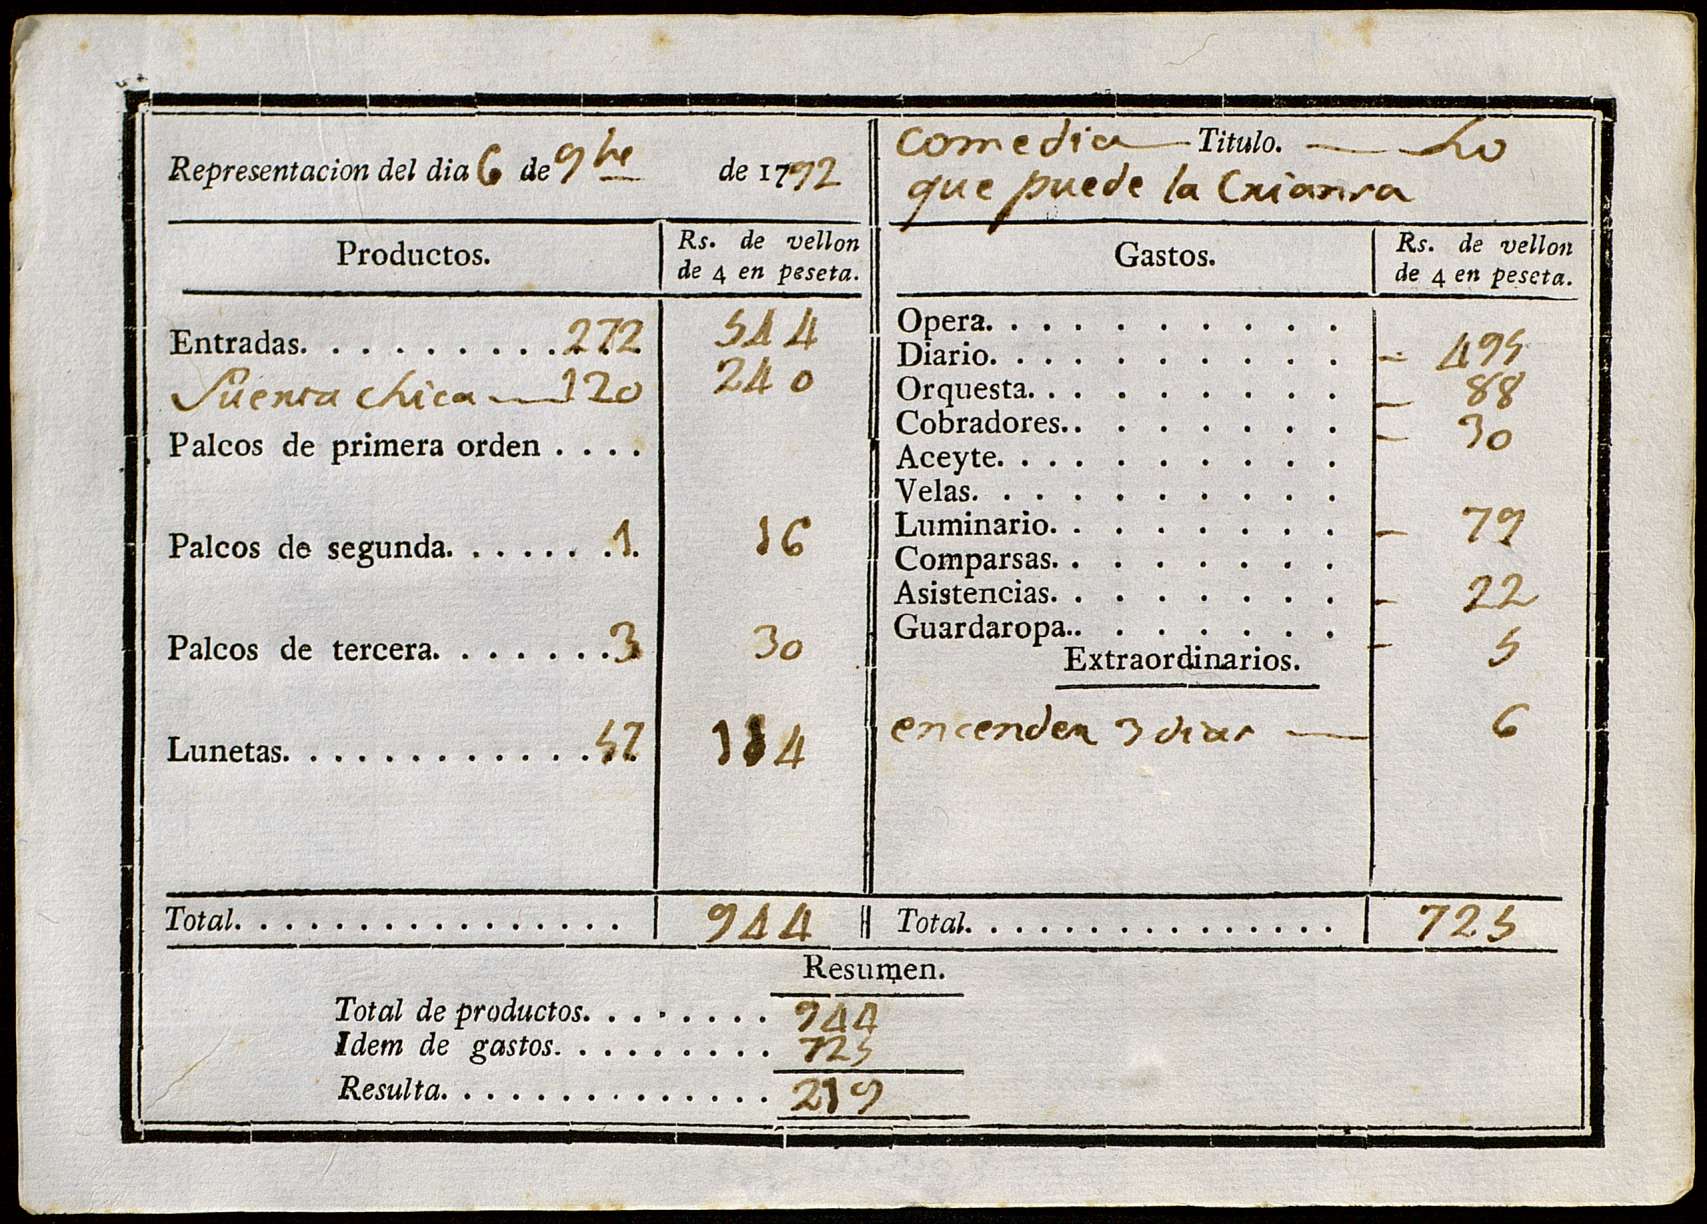 Representacion del dia 6 de 9bre de 1792
Comedia Titulo. Lo
que puede la Crianza
Productos.
Rs. de vellon
de 4 en peseta.
Entradas. . . . . . . . . . . 272 544
chica 120 240
Palcos de primera orden . . . .
Palcos de segunda. . . . . . . 1 16
Palcos de tercera. . . . . . . 3 30
Lunetas. . . . . . . . . . . . . 57 114
Total. . . . . . . . . . . . . . . . 944
Gastos.
Rs. de vellon
de 4 en peseta.
Opera. . . . . . . . . . .
Diario. . . . . . . . . . . 495
Orquesta. . . . . . . . . 88
Cobradores.. . . . . . . 30
Aceyte. . . . . . . . . . .
Velas. . . . . . . . . . .
Luminario. . . . . . . . 79
Comparsas. . . . . . . .
Asistencias. . . . . . . . 22
Guardaropa.. . . . . . . 5
Extraordinarios.
encender 3 dias 6
Total. . . . . . . . . . . . . . . . 725
Resumen.
Total de productos. . . . . . . . 944
Idem de gastos. . . . . . . . . . 725
Resulta. . . . . . . . . . . . . . . 219